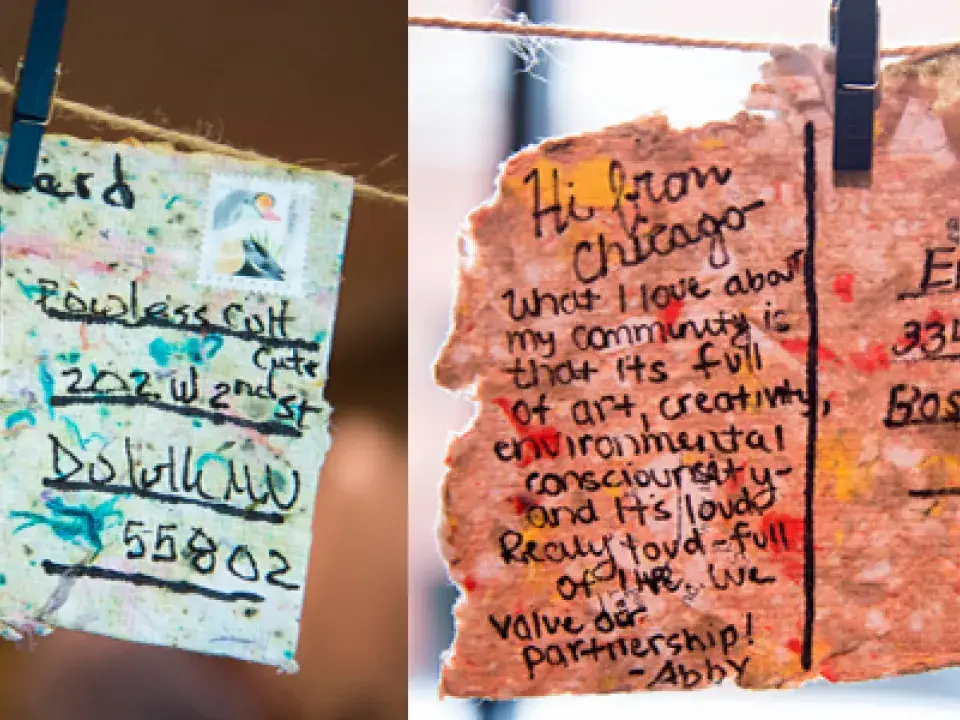 ard
Cult
Cafe
202 W 2nd St
Duluth MN
55802
Hi from
Chicago-
What I love about
my community is
that its full
of art, creativity,
environmental
and it's loud
Really loud-full
of life. We
value our
partnership!
-Abby
334
Bos